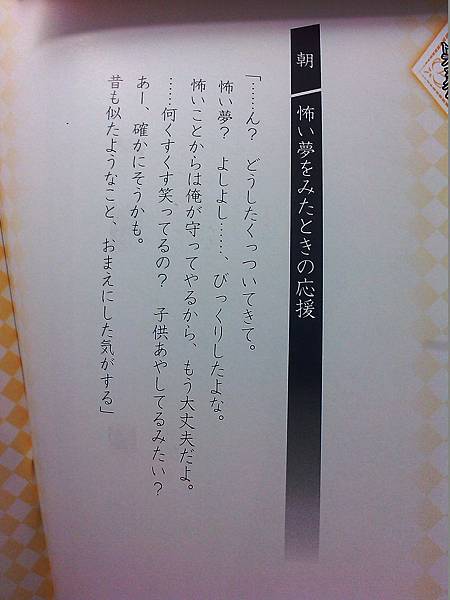 朝
怖い夢をみたときの応援
「……ん？　どうしたくっついてきて。
怖い夢？　よしよし……、びっくりしたよな。
怖いことからは俺が守ってやるから、もう大丈夫だよ。
……何くすくす笑ってるの？　子供あやしてるみたい？
あー、確かにそうかも。
昔も似たようなこと、おまえにした気がする」